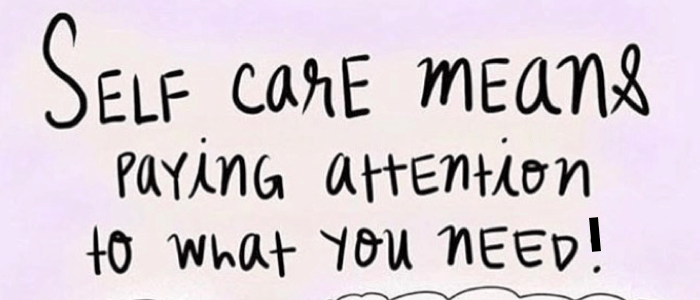 SELF caRE mEans
PayinG attEntion
to what you nEED!